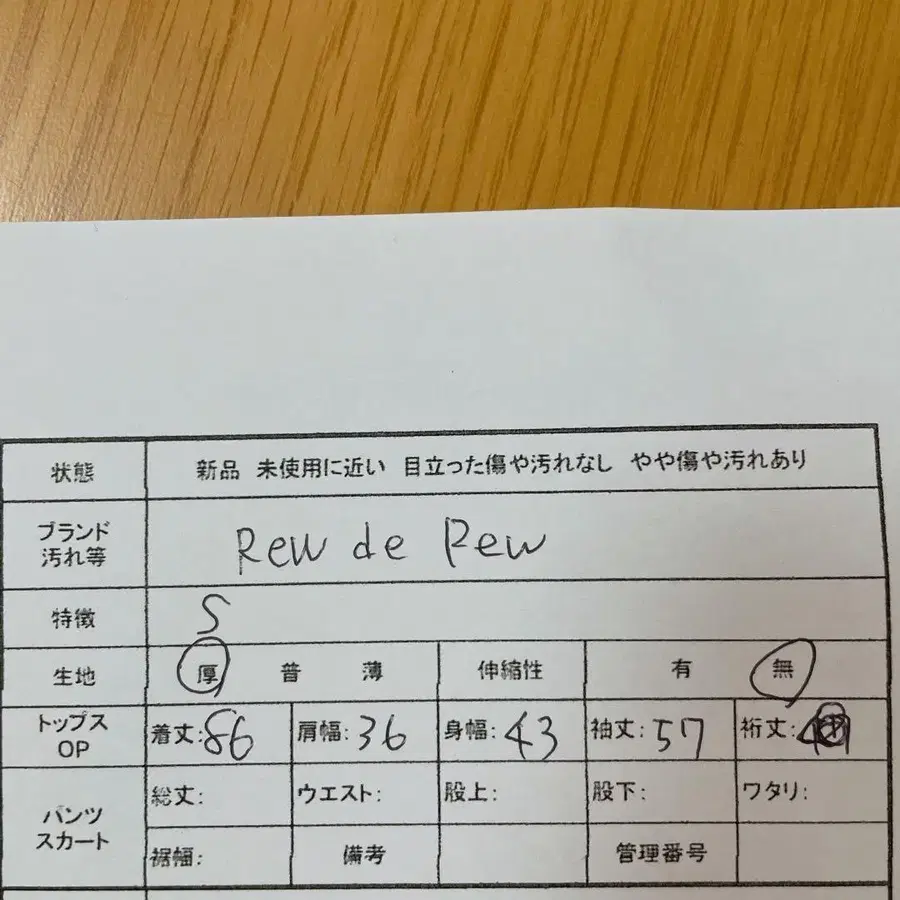 状態 新品 未使用に近い 目立った傷や汚れなし やや傷や汚れあり
ブランド
汚れ等
Rew de Rew
特徴 S
生地 厚 普 薄 伸縮性 有 無
トップス
OP
着丈:86 肩幅:36 身幅:43 袖丈:57 裄丈:
パンツ
スカート
総丈: ウエスト: 股上: 股下: ワタリ:
裾幅: 備考 管理番号